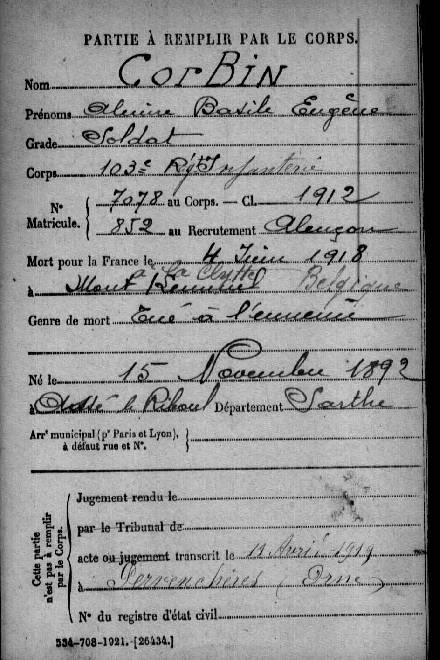 PARTIE À REMPLIR PAR LE CORPS.
Nom CORBIN
Prénoms Basile Eugène
Grade Soldat
Corps 103e Rgt Infanterie
N° Matricule. { 7078 au Corps. — Cl. 1912
852 au Recrutement Alençon
Mort pour la France le 4 Juin 1918
à la Clytte
à Mont Belgique
Genre de mort Tué à l'ennemi
Né le 15 Novembre 1892
à le Riboul Département Sarthe
Arrt municipal (pr Paris et Lyon), à défaut rue et N°. {
Cette partie n'est pas à remplir par le Corps.
Jugement rendu le
par le Tribunal de
acte ou jugement transcrit le 11 Avril 1919
à Pervenchères (Orne)
N° du registre d'état civil
534-708-1921. [26434.]